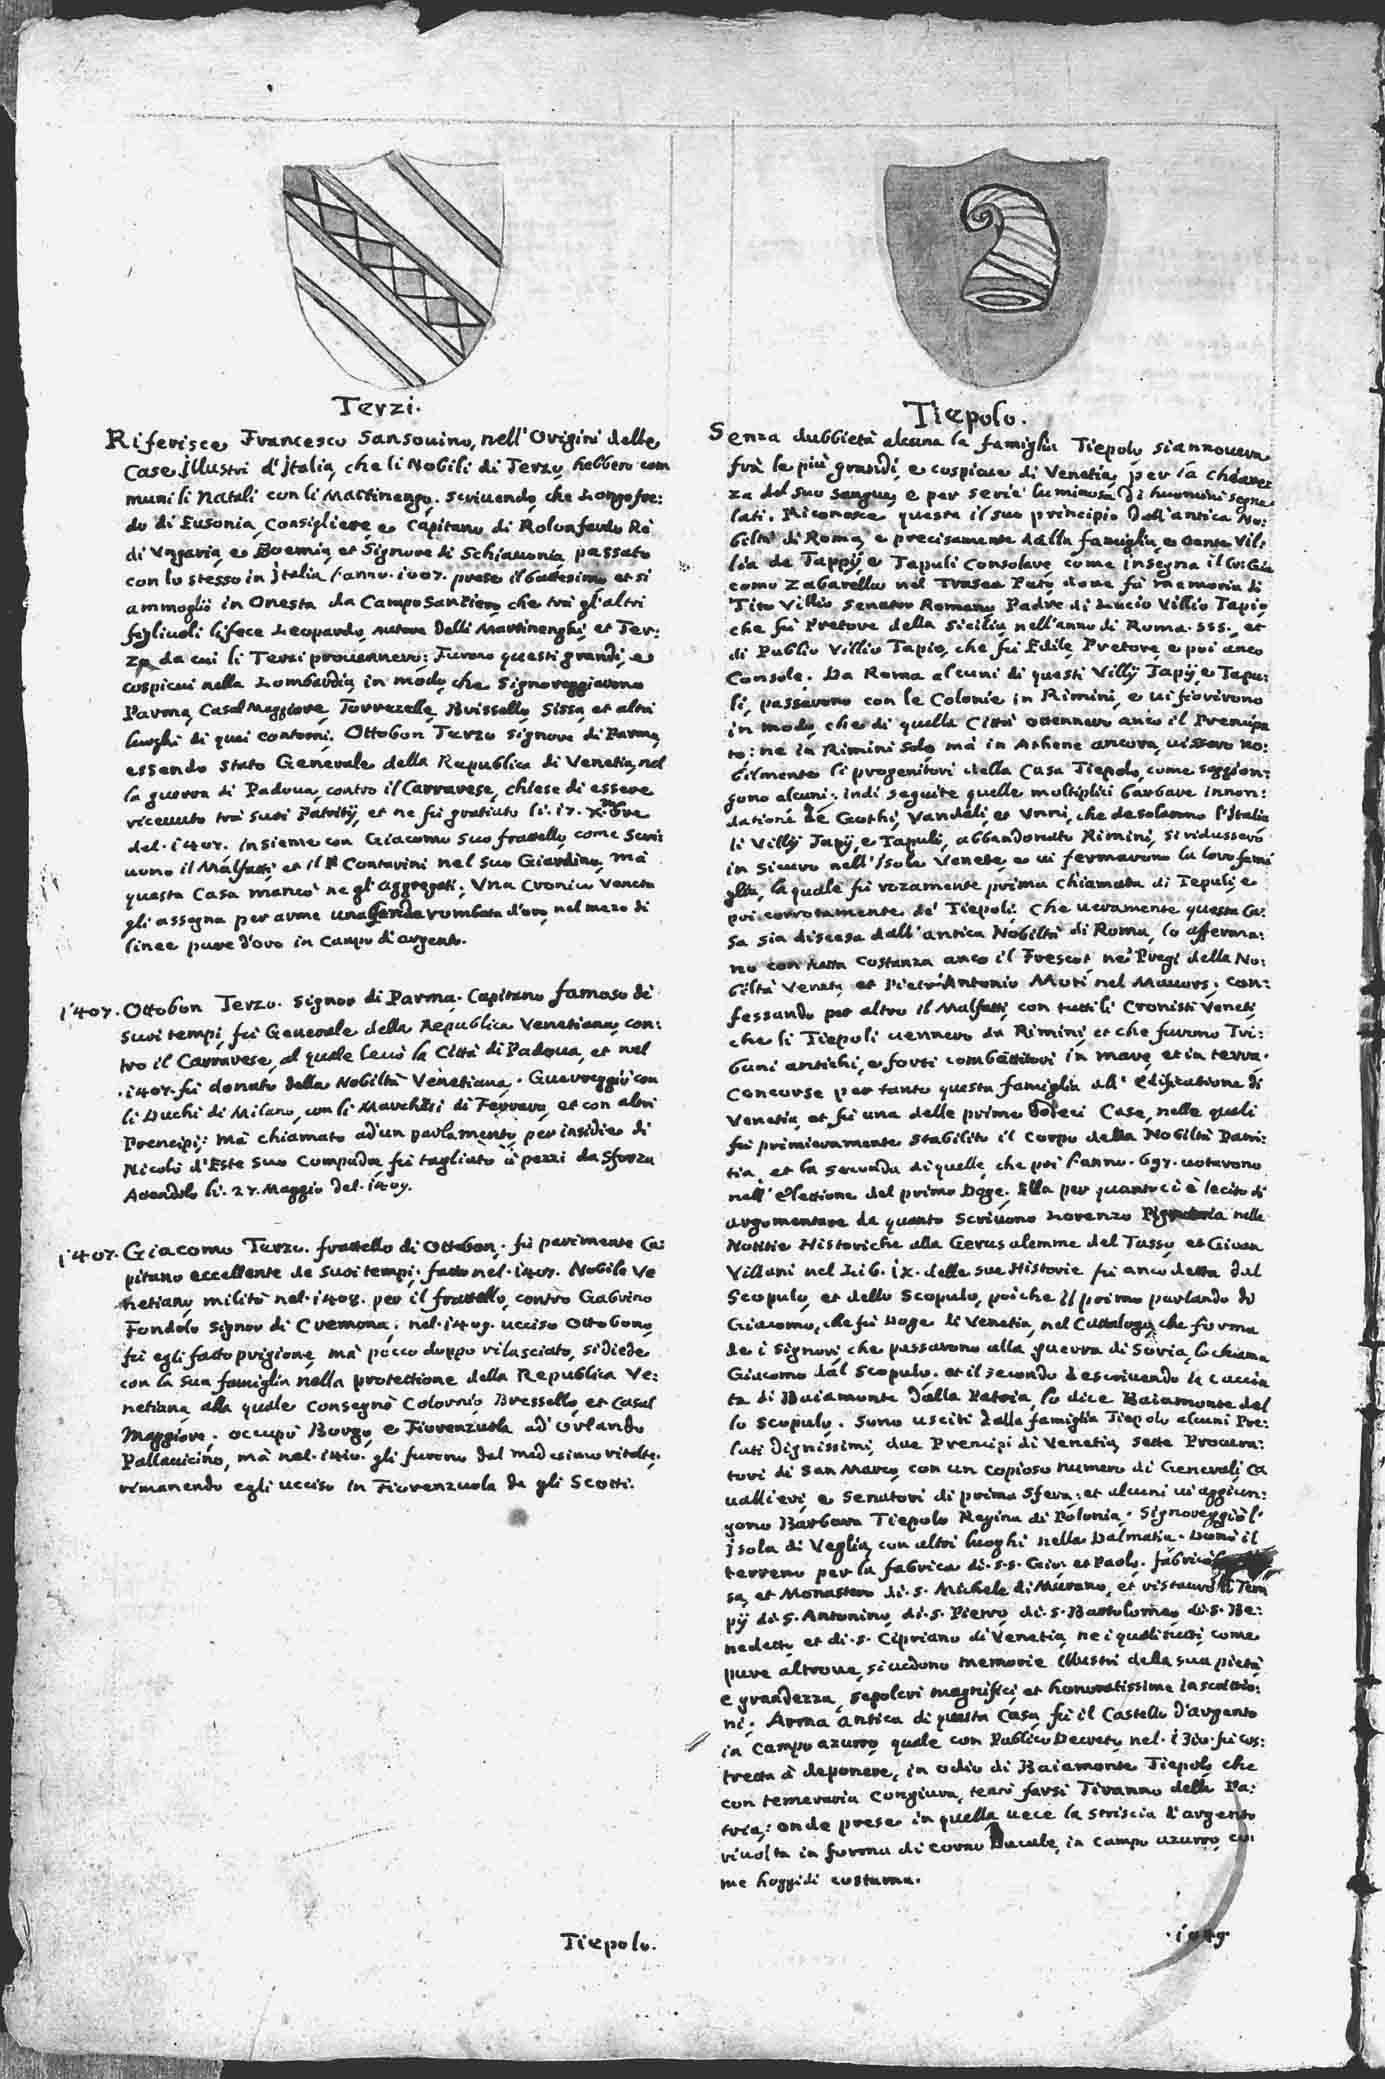 Terzi.
Riferisce Francesco Sansouino, nell'Origini delle
Case jllustri d'jtalia, che li Nobili di Terzo, hebbero com
muni li Natali con li Martinengo. scriuendo, che Longofre:
do di Eusonia, Consigliere e Capitano di Rolonfardo Rè
di Vngaria, e Boemia, et Signore di Schiauonia passato
con lo stesso in jtalia l'anno. 1007. prese il battesimo et si
ammogliò in Onesta da CampoSanPiero che trà gl'altri
figliuoli li fece Leopardo, autore delli Martinenghi, et Ter:
zo, da cui li Terzi prouennero: Furono questi grandi, e
cospicui nella Lombardia, in modo, che Signoreggiarono
Parma, Casal Maggiore, Torrezelle, Brissello, Sissa, et altri
luoghi di quei contorni. Ottobon Terzo signore di Parma,
essendo stato Generale della Republica di Venetia, nel
la guerra di Padoua, contro il Carrarese, chiese di essere
riceuuto trà suoi Patritij, et ne fù gratiato li. 17. Xmbre
del. 1407. insieme con Giacomo suo fratello, come scri:
uono il Malfatti, et il Contarini nel suo Giardino; mà
questa Casa mancò ne gl'aggregati. Vna Cronica Veneta
gli assegna per arme una benda rombata d'oro, nel mezo di
linee pure d'oro in campo d'argento.
1407. Ottobon Terzo. Signor di Parma. Capitano famoso de
suoi tempi, fù Generale della Republica Venetiana, con:
tro il Carrarese, al quale leuò la Città di Padoua, et nel
.1407. fù donato della Nobiltà Venetiana. Guerreggiò con
li Duchi di Milano, con li Marchesi di Ferrara, et con altri
Prencipi; mà chiamato ad'un parlamento, per insidie di
Nicolò d'Este suo Compadre, fù tagliato à pezzi da Sforza
Atendolo li. 27. Maggio del. 1409.
1407. Giacomo Terzo. fratello di Ottobon. fù parimente Ca:
pitano eccellente de suoi tempi. fatto nel. 1407. Nobile Ve
netiano, militò nel. 1408. per il fratello, contro Gabrino
Fondolo Signor di Cremona; nel. 1409. ucciso Ottobono,
fù egli fatto prigione, mà pocco doppo rilasciato, si diede
con la sua famiglia nella protettione della Republica Ve:
netiana, alla quale consegnò Colornio Bressello, et Casal
Maggiore. occupò Borgo, e Fiorenzuola ad'Orlando
Pallauicino, mà nel. 1410. gli furono dal medesimo ritolte,
rimanendo egli ucciso in Fiorenzuola da gli Scotti.
Tiepolo.
Tiepolo.
Senza dubbietà alcuna la famiglia Tiepolo, si annouera
frà le più grandi, e cospicue di Venetia, per la chiarez
za del suo sangue, e per serie luminosa di huomini segna
lati. Riconosce questa il suo principio dall'antica No:
biltà di Roma, e precisamente dalla famiglia, e Gente Vil:
lia de Tappij, e Tapuli Consolare come insegna il Co: Gia
como Zabarella nel Trasea Peto, doue fà memoria di
Tito Villio Senator Romano, Padre di Lucio Villio Tapio,
che fù Pretore della Sicilia, nell'anno di Roma. 555., et
di Publio Villio Tapio, che fù Edile, Pretore, e poi anco
Console. Da Roma alcuni di questi Villij Tapij, e Tapu:
li, passarono con le Colonie in Rimini, e ui fiorirono
in modo, che di quella Città ottennero anco il Prencipa
to; ne in Rimini solo, mà in Athene ancora, uissero no:
bilmente li progenitori della Casa Tiepolo, come soggion:
gono alcuni; indi seguite quelle moltiplici barbare innon:
dationi de Gothi, Vandali, et Vnni, che desolarono l'Italia
li Villij Tapij, e Tapuli, abbandonato Rimini, si ridussero
in sicuro nell'Isole Venete, e ui fermarono la loro fami
glia, la quale fù rozamente prima chiamata di Tepuli, e
poi corrotamente de' Tiepoli. Che ueramente questa Ca:
sa sia discesa dall'antica Nobiltà di Roma, lo afferma:
no con tutta costanza anco il Frescot ne' Pregi della No:
biltà Veneta, et Pietr'Antonio Muti nel Mauors; con:
fessando per altro il Malfatti, con tutti li Cronisti Veneti,
che li Tiepoli uennero da Rimini, et che furono Tri:
buni antichi, e forti combattitori in mare, et in terra.
Concorse per tanto questa famiglia all'edificatione di
Venetia, et fù una delle prime dodeci Case, nelle quali
fù primieramente stabilito il corpo della Nobiltà Patri:
tia, et la seconda di quelle, che poi l'anno. 697. uotarono
nell'elettione del primo Doge. Ella per quanto ci è lecito di
argomentare da quanto scriuono Lorenzo Pignoria nelle
Notitie Historiche alla Gerusalemme del Tasso, et Giouan
Villani nel Lib. IX. delle sue Historie fù anco detta dal
Scopulo, et dello Scopulo, poiche il primo parlando di
Giacomo, che fù Doge di Venetia, nel Cattalogo, che forma
de i Signori, che passarono alla guerra di Soria, lo chiama
Giacomo dal Scopulo. et il secondo descriuendo la caccia
ta di Baiamonte dalla Patria, lo dice Baiamonte del
lo Scopulo. Sono usciti dalla famiglia Tiepolo alcuni Pre:
lati dignissimi, due Prencipi di Venetia, sette Procura:
tori di San Marco, con un copioso numero di Generali, Ca
uallieri, e Senatori di prima sfera; et alcuni ui aggiun:
gono Barbara Tiepolo Regina di Polonia. Signoreggiò l'
jsola di Veglia, con altri luoghi nella Dalmatia. Donò il
terreno per la fabrica di. S.S. Gio: et Paolo. fabricò
sa, et Monastero di. S. Michele di Murano, et ristaurò li Tem
pij di. S. Antonino, di. S. Pietro, di. S. Bartolomeo, di. S. Be:
nedetto, et di. S. Cipriano di Venetia, ne i quali tutti, come
pure altroue, si uedono memorie illustri della sua pietà
e grandezza, sepolcri magnifici, et honoratissime inscrittio:
ni. Arma antica di questa Casa, fù il Castello d'argento
in Campo azurro, quale con Publico Decreto, nel. 1310. fù cos:
tretta à deponere, in odio di Baiamonte Tiepolo, che
con temeraria congiura, tentò farsi Tiranno della Pa:
tria: onde prese in quella uece la striscia d'argento
riuolta in forma di corno Ducale, in campo azurro, co:
me hoggidi costuma.